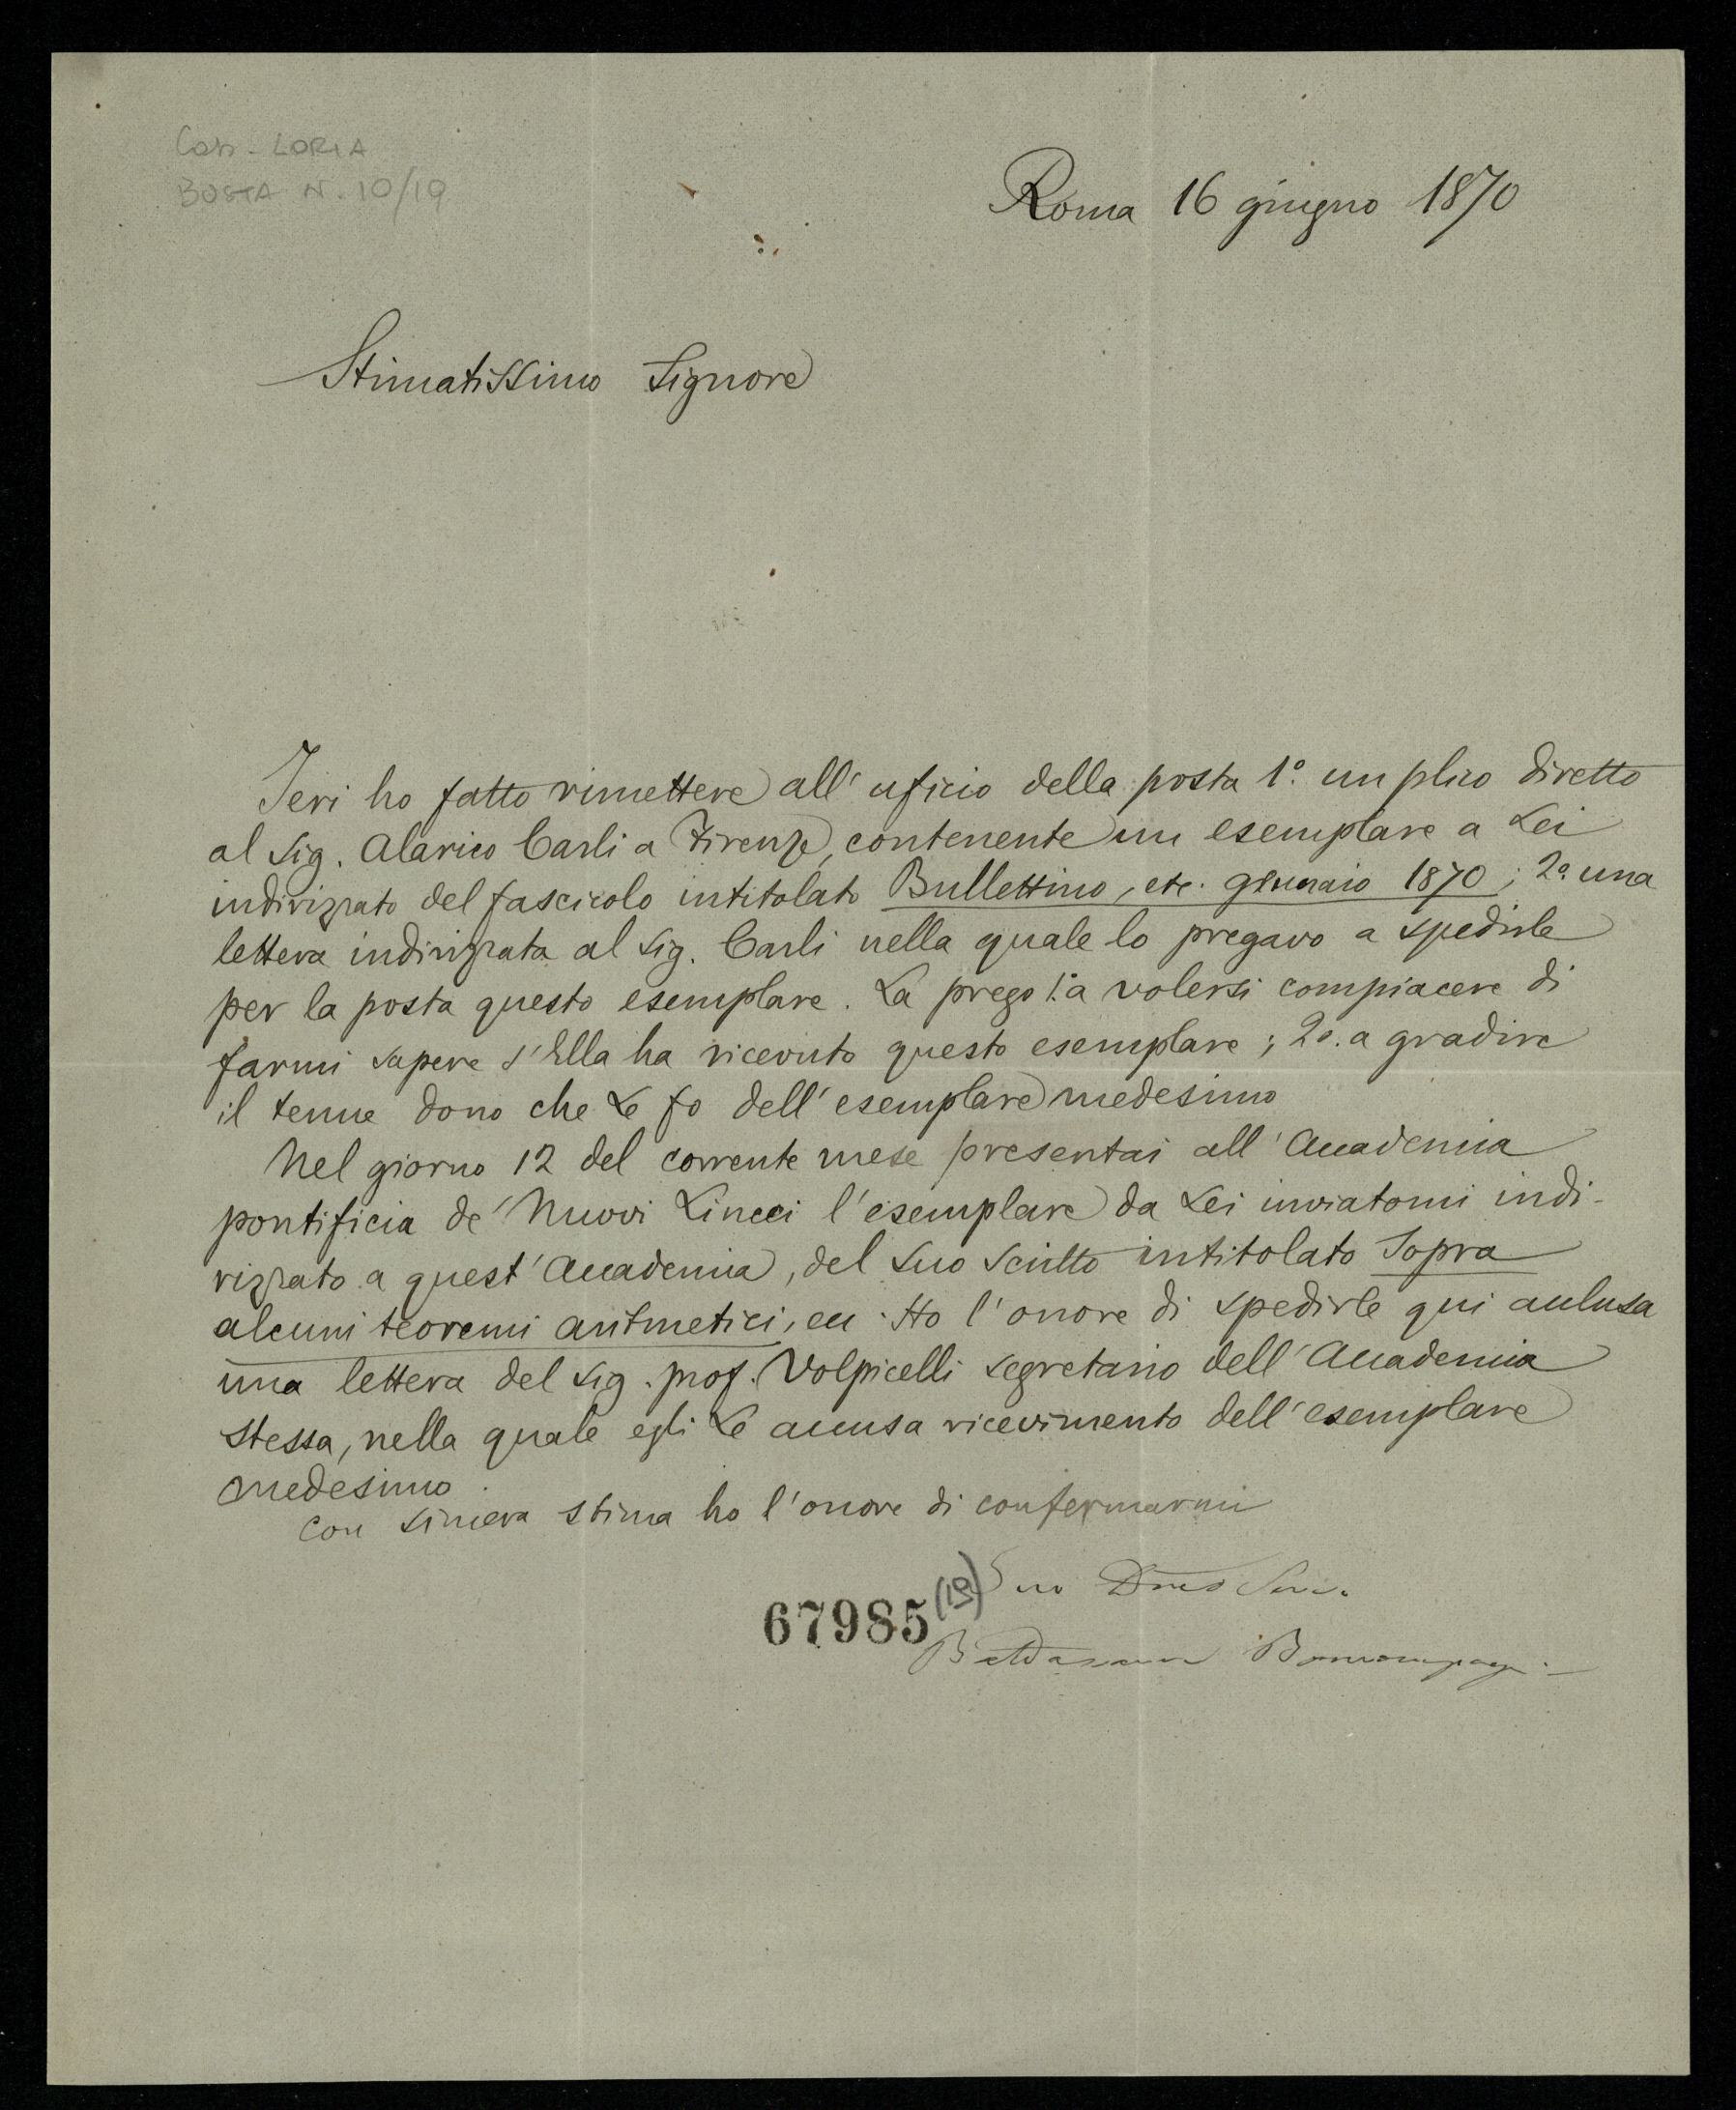 Cass - LORIA
BUSTA N. 10/19
Roma 16 giugno 1870
Stimatissimo Signore
Ieri ho fatto rimettere all' uficio della posta 1.° un plico diretto
al Sig. Alarico Carli a Firenze, contenente un esemplare a Lei
indirizzato del fascicolo intitolato Bullettino, etc. gennaio 1870; 2.° una
lettera indirizzata al Sig. Carli nella quale lo pregavo a spedirle
per la posta questo esemplare. La prego 1.° a volersi compiacere di
farmi sapere s'Ella ha ricevuto questo esemplare; 2.° a gradire
il tenue dono che Le fo dell'esemplare medesimo
Nel giorno 12 del corrente mese presentai all'Accademia
pontificia de' Nuovi Lincei l'esemplare da Lei inviatomi indi-
rizzato a quest'Accademia, del suo scritto intitolato Sopra
alcuni teoremi aritmetici, ec. Ho l'onore di spedirle qui acclusa
una lettera del Sig. prof. Volpicelli segretario dell'Accademia
stessa, nella quale egli Le accusa ricevimento dell'esemplare
medesimo.
Con sincera stima ho l'onore di confermarmi
Suo Dmo Serv.
67985 (19)
Baldassarre Boncompagni